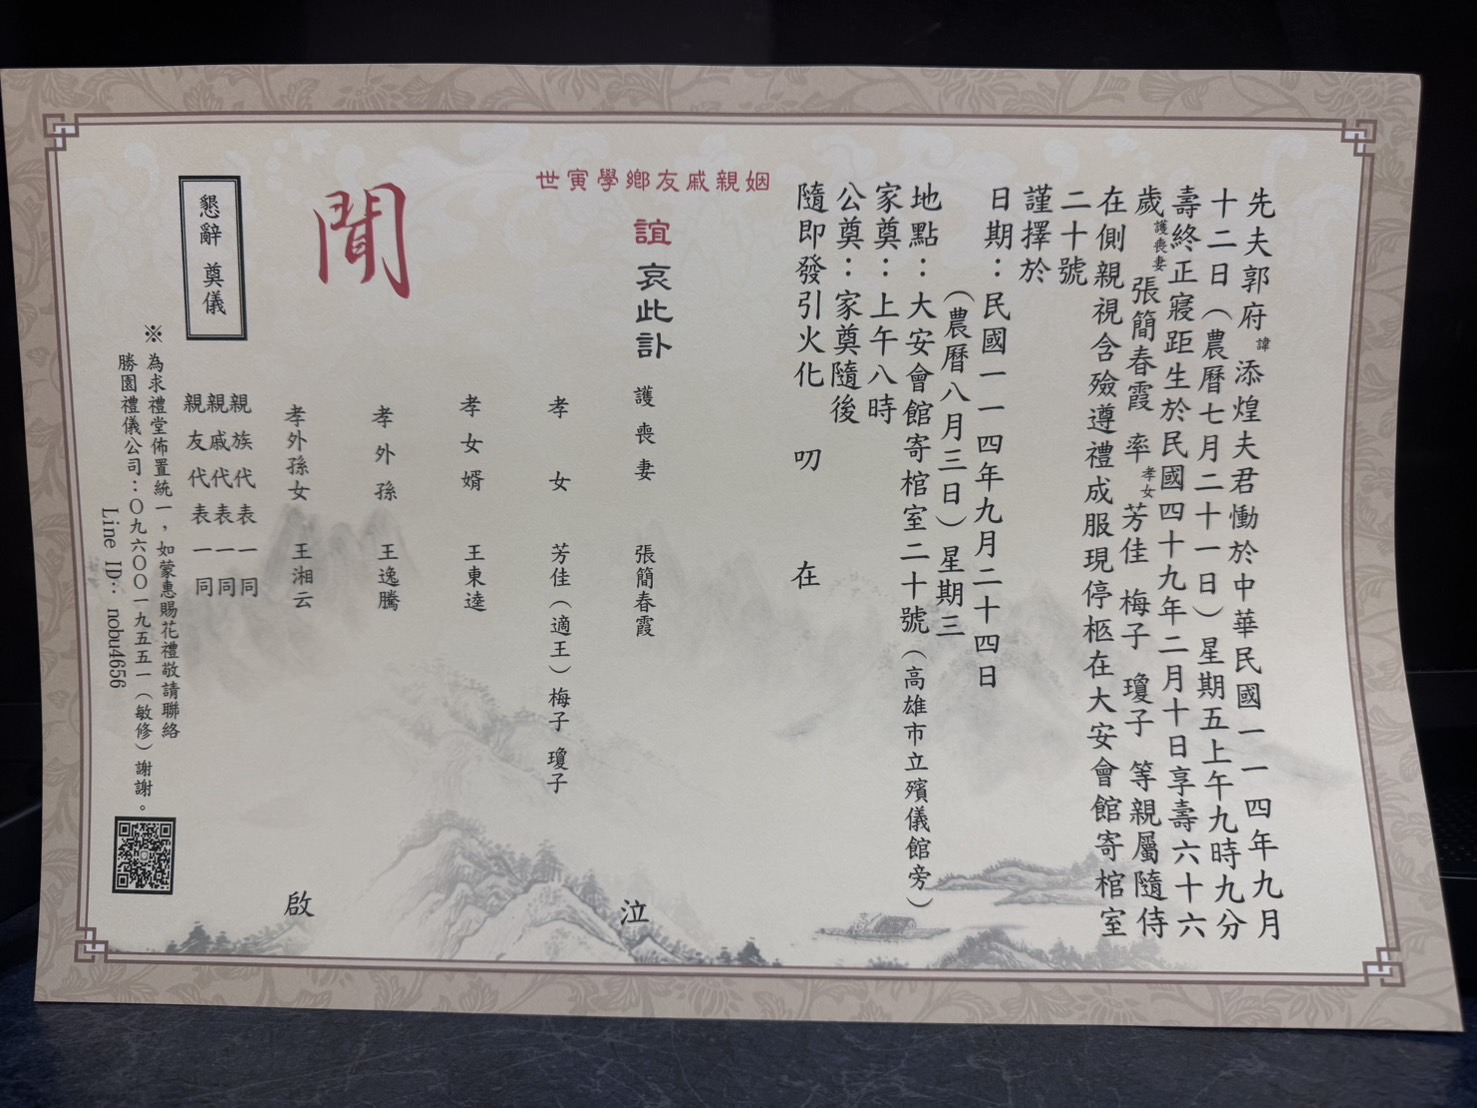 先夫郭府諱添煌夫君慟於中華民國一一四年九月
十二日（農曆七月二十一日）星期五上午九時九分
壽終正寢距生於民國四十九年二月十日享壽六十六
歲護喪妻張簡春霞 率孝女芳佳 梅子 瓊子 等親屬隨侍
在側親視含殮遵禮成服現停柩在大安會館寄棺室
二十號
謹擇於
日期：民國一一四年九月二十四日
（農曆八月三日）星期三
地點：大安會館寄棺室二十號（高雄市立殯儀館旁）
家奠：上午八時
公奠：家奠隨後
隨即發引火化 叨 在
世寅學鄉友戚親姻
誼 哀此訃
聞
護喪妻 張簡春霞
孝女 芳佳（適王）梅子 瓊子
孝女婿 王東逵
孝外孫 王逸騰
孝外孫女 王湘云
泣
啟
親族代表一同
親戚代表一同
親友代表一同
懇辭 奠儀
※為求禮堂佈置統一，如蒙惠賜花禮敬請聯絡
勝園禮儀公司：０九六００一九五五一（敏修）謝謝。
Line ID：nobu4656